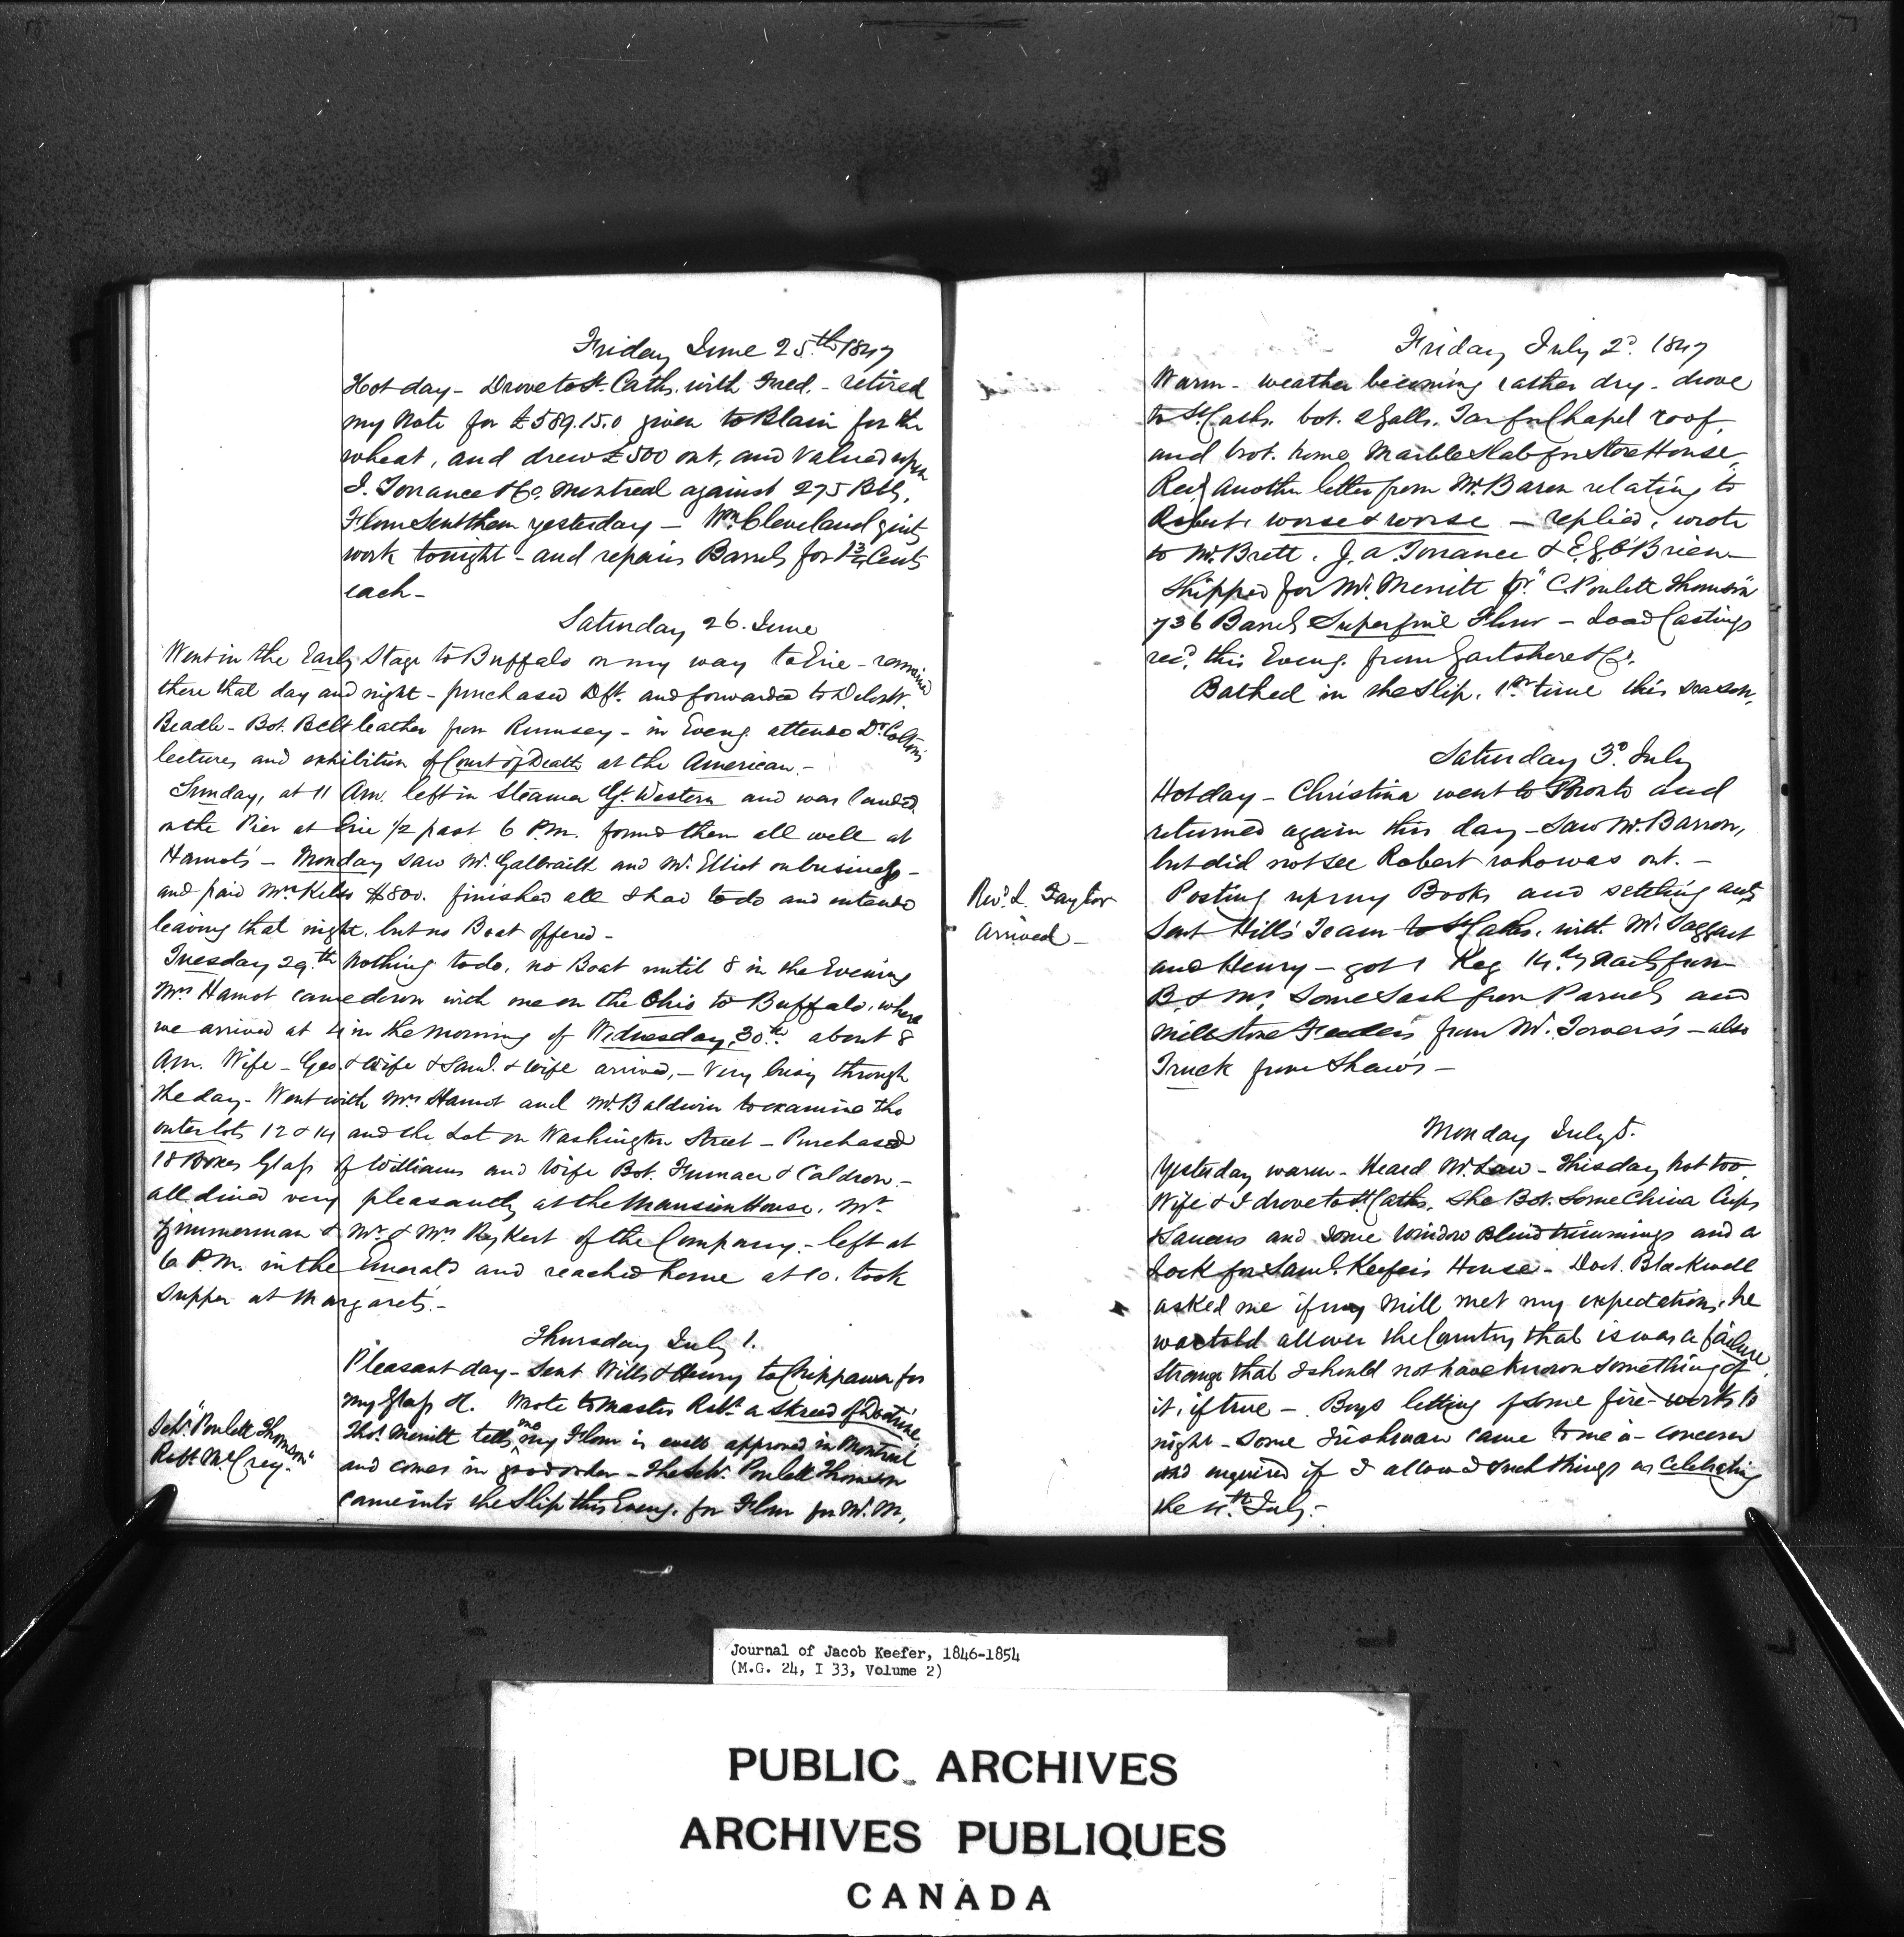 Friday June 25th 1847
Hot day - Drove to St. Caths. with Fred. - retired
my Note for £589.15.0 given to Blain for the
wheat, and drew £500 out, and valued upon
J. Torrance & Co. Montreal against 275 Bbls.
Flour sent them yesterday - Wm. Cleveland quits
work tonight - and repairs Barrels for 1 3/4 Cents
each -
Saturday 26. June
Went in the Early Stage to Buffalo on my way to Erie - remained
there that day and night - purchased Dft. and forwarded to Delos W.
Beadle - Bot. Belt leather from Rumsey - in Eveng. attended Dr. Colton's
lectures and exhibition of Court of Death at the American. -
Sunday, at 11 Am. left in Steamer Gt. Western and was landed
on the Pier at Erie 1/2 past 6 P.M. found them all well at
Hamots' - Monday saw Mr. Galbraith and Mr. Elliot on business -
and paid Mrs Kelso $800. finished all I had to do and intended
leaving that night, but no Boat offered -
Tuesday 29.th Nothing to do, no Boat until 8 in the Evening
Mrs Hamot came down with me on the Ohio to Buffalo, where
we arrived at 4 in the morning of Wednesday, 30th. about 8
Am. Wife - Geo. & Wife & Saml. & Wife arrived, - Very busy through
the day - Went with Mrs Hamot and Mr. Baldwin to examine the
outer lots 12 & 14 and the Lot on Washington Street - Purchased
18 Boxes Glass of Williams and Wife Bot. Furnace & Caldron. -
all dined very pleasantly at the Mansion House, Mr.
Zimmerman & Mr. & Mrs Rykert of the Company. - left at
6 P.M. in the Emerald and reached home at 10. took
Supper at Margaret's. -
Thursday July 1.
Pleasant day - Sent Wills & Henry to Chippawa for
my Glass &c. Wrote to Master Robt. a Skreed of Doctrine
Thos. Merritt tells me my Flour is well approved in Montreal
and comes in good order - The Schr. Poulett Thomson
came into the Slip this Eveng. for Flour for W. M.
Schr. "Poulett Thomson"
Robt. McCrey.
Friday July 2d. 1847
Warm - weather becoming rather dry - drove
to St. Caths. bot. 2 Galls. Tar for Chapel roof,
and brot. home Marble Slab for Store House.
Recd. another letter from Mr. Baron relating to
Robert, worse & worse - replied, wrote
to Mr. Brett. J. A. Torrance & E. G. O'Brien -
Shipped for Mr. Merritt pr. "C. Poulett Thomson"
736 Barrels Superfine Flour - Load Castings
recd. this Eveng. from Gartshore & Co.
Bathed in the Slip. 1st time this season.
Saturday 3d. July
Hot day - Christina went to Toronto and
returned again this day - Saw Mr. Barron,
but did not see Robert who was out. -
Posting up my Books and settling accts
Sent Hill's Team to St. Caths. with Mr. Taggart
and Henry - got 1 Keg 14.dy Nails from
B. & Mc. Some Sash from Parnels and
Mill Stone Feeders from Mr. Towers's - also
Truck from Shaw's -
Revd. L. Taylor
arrived -
Monday July 5.
Yesterday warm - Heard Mr. Law - This day hot too
Wife & I drove to St. Caths. She Bot. Some China Cups
& Saucers and some Window Blind trimmings and a
Lock for Saml. Keefer's House - Doct. Blackwell
asked me if my Mill met my expectations, he
was told all over the Country that it was a failure
Strange that I should not have known something of
it, if true - Boys letting off some fire-works to
night - Some Irishman came to me in concern
and enquired if I allowed such things as Celebrating
the 4th. July. -
Journal of Jacob Keefer, 1846-1854
(M.G. 24, I 33, Volume 2)
PUBLIC ARCHIVES
ARCHIVES PUBLIQUES
CANADA